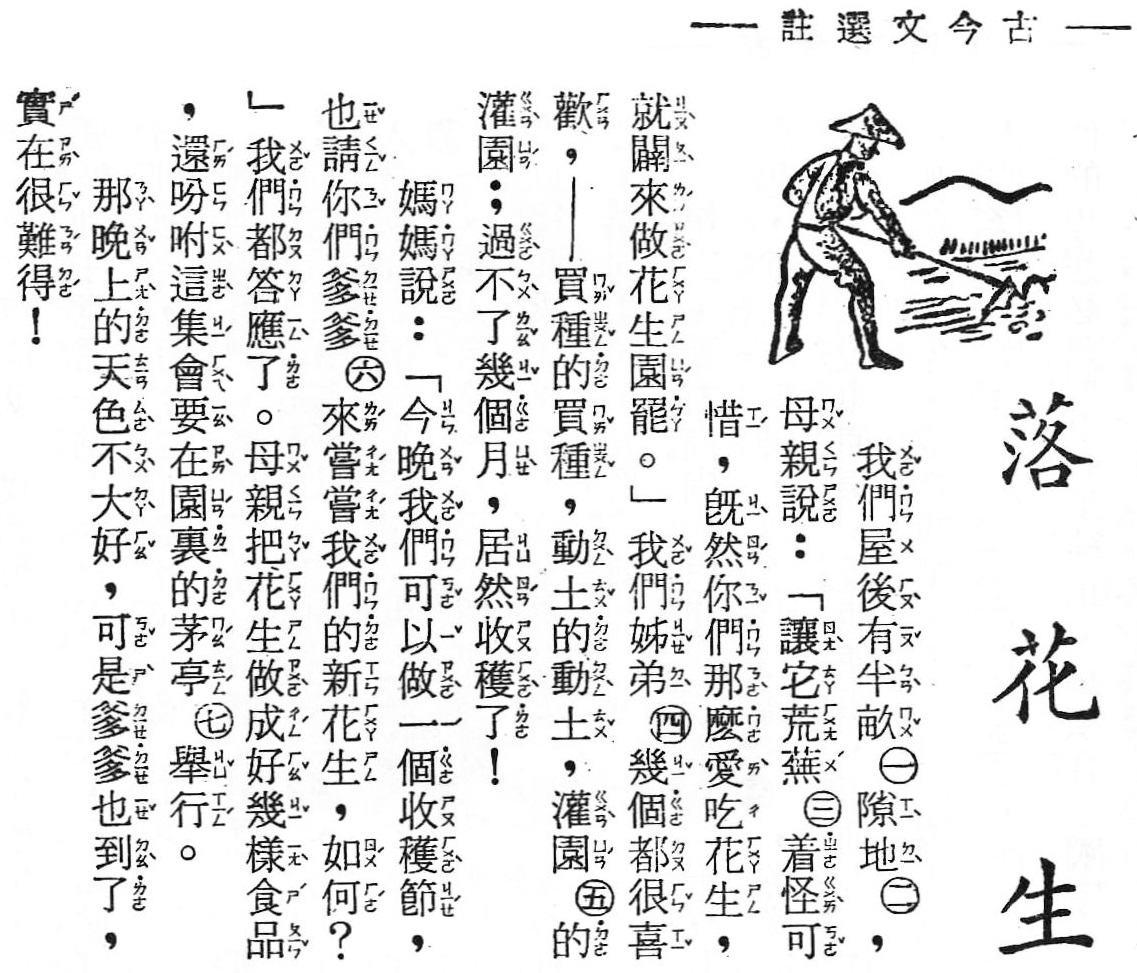 古今文選註
落花生
我們屋後有半畝㊀隙地㊁,
母親說:「讓它荒蕪㊂着怪可
惜,既然你們那麽愛吃花生,
就闢來做花生園罷。」我們姊弟㊃幾個都很喜
歡,——買種的買種,動土的動土,灌園㊄的
灌園;過不了幾個月,居然收穫了!
媽媽說:「今晚我們可以做一個收穫節,
也請你們爹爹㊅來嘗嘗我們的新花生,如何?
」我們都答應了。母親把花生做成好幾樣食品
,還吩咐這集會要在園裏的茅亭㊆舉行。
那晚上的天色不大好,可是爹爹也到了,
實在很難得!